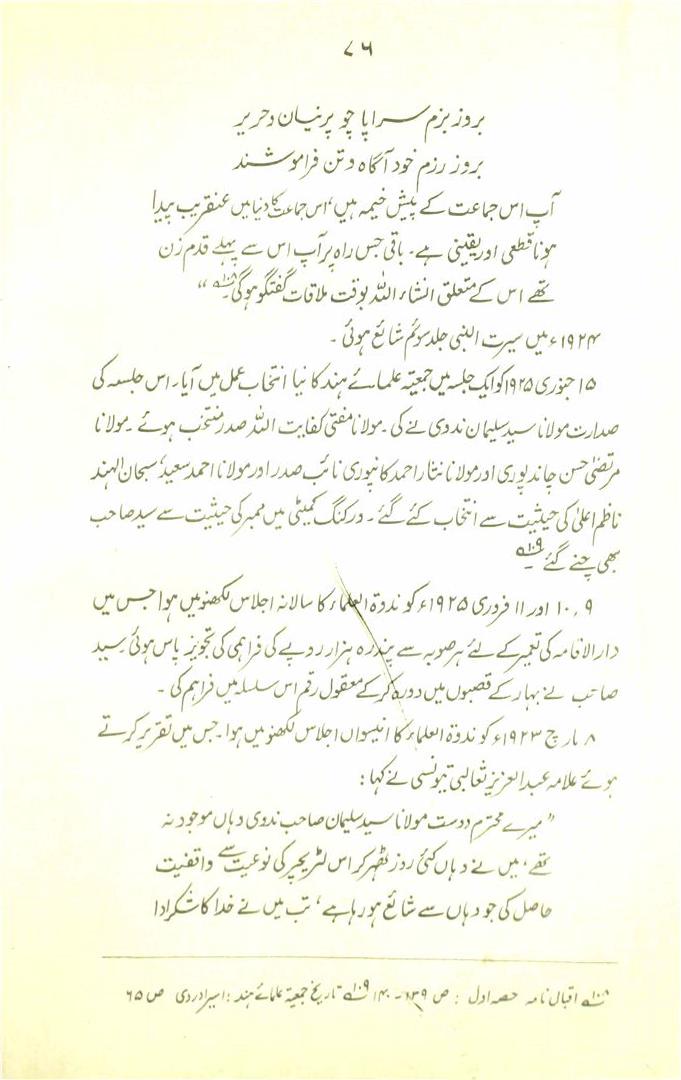 ۷۶
بروز بزم سراپا چو پرنیان و حریر
بروز رزم خود آگاہ و تن فراموشند
آپ اس جماعت کے پیش خیمہ ہیں، اس جماعت کا دنیا میں عنقریب پیدا
ہونا قطعی اور یقینی ہے۔ باقی جس راہ پر آپ اس سے پہلے قدم زن
تھے اس کے متعلق انشاء اللہ بوقت ملاقات گفتگو ہوگی۔۱۰۸؎ “
۱۹۲۴ء میں سیرت النبی جلد سوئم شائع ہوئی ۔
۱۵ جنوری ۱۹۲۵ کو ایک جلسہ میں جمعیتہ علمائے ہند کا نیا انتخاب عمل میں آیا۔ اس جلسہ کی
صدارت مولانا سید سلیمان ندوی نے کی ۔ مولانا مفتی کفایت اللہ صدر منتخب ہوئے ۔ مولانا
مرتضیٰ حسن چاندپوری اور مولانا نثار احمد کانپوری نائب صدر اور مولانا احمد سعید، سبحان الہند
ناظم اعلیٰ کی حیثیت سے انتخاب کئے گئے ۔ ورکنگ کمیٹی میں ممبر کی حیثیت سے سید صاحب
بھی چنے گئے ۱۰۹؎ ۔
۹، ۱۰ اور ۱۱ فروری ۱۹۲۵ء کو ندوۃ العلماء کا سالانہ اجلاس لکھنؤ میں ہوا جس میں
دارالاقامہ کی تعمیر کے لئے ہر صوبہ سے پندرہ ہزار روپے کی فراہمی کی تجویز پاس ہوئی۔ سید
صاحب نے بہار کے قصبوں میں دورہ کر کے معقول رقم اس سلسلہ میں فراہم کی ۔
۸ مارچ ۱۹۲۳ء کو ندوۃ العلماء کا انیسواں اجلاس لکھنؤ میں ہوا۔ جس میں تقریر کرتے
ہوئے علامہ عبدالعزیز ثعالبی تیونسی نے کہا :
” میرے محترم دوست مولانا سید سلیمان صاحب ندوی وہاں موجود نہ
تھے، میں نے وہاں کئی روز ٹھہر کر اس لٹریچر کی نوعیت سے واقفیت
حاصل کی جو وہاں سے شائع ہو رہا ہے، تب میں نے خدا کا شکر ادا
۱۰۸؎ اقبال نامہ حصہ اول : ص ۱۳۹ - ۱۴۰ ۱۰۹؎ تاریخ جمعیتہ علمائے ہند : اسیر ادروی ص ۶۵